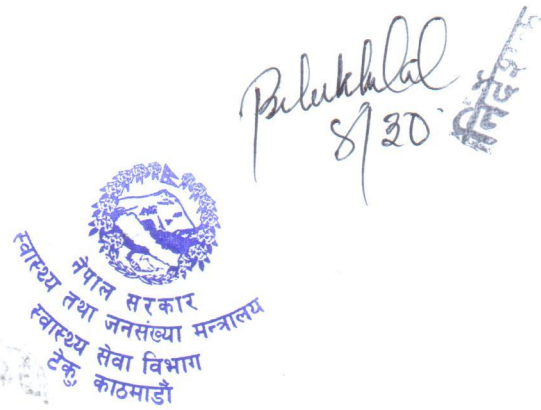 8/20
निर्देशक
नेपाल सरकार
स्वास्थ्य तथा जनसंख्या मन्त्रालय
स्वास्थ्य सेवा विभाग
टेकु काठमाडौं